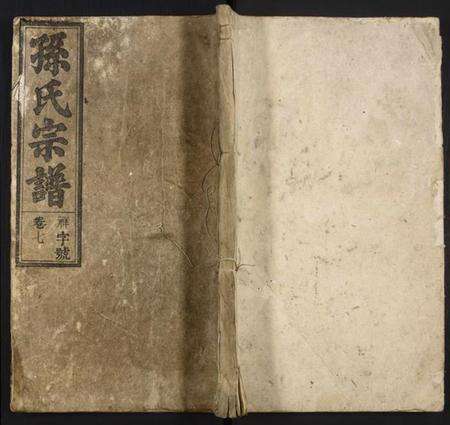 孫氏宗譜
字號
卷七